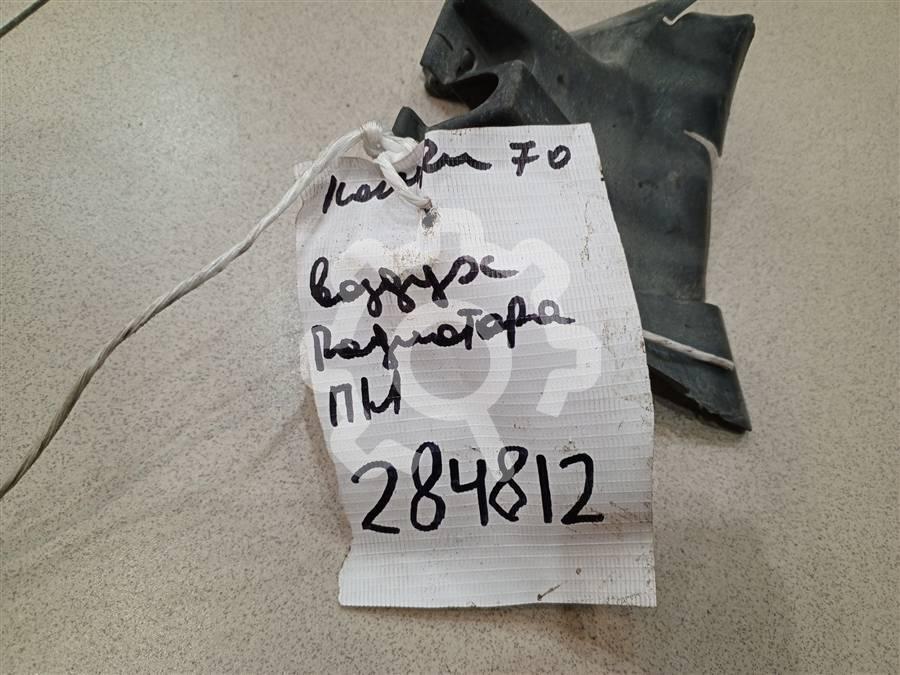 Камри 70
Воздухо
Радиатора
ПН
284812